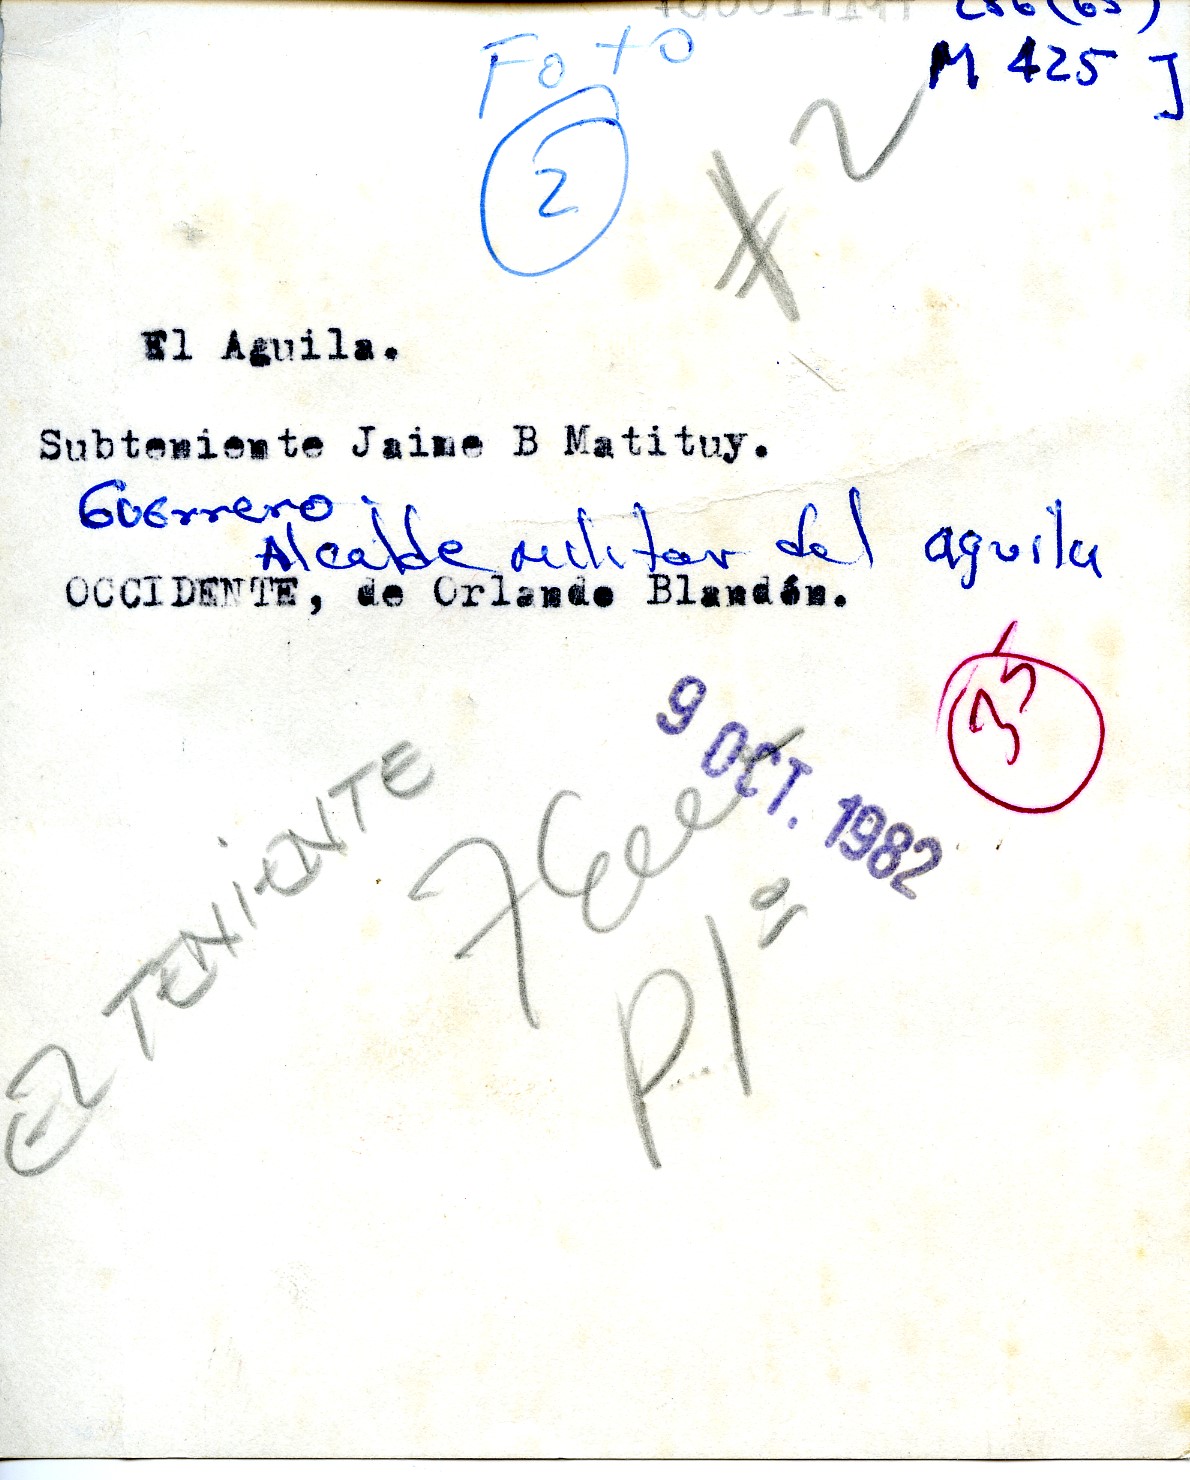 M 425 J
Foto
2
X 2
El Aguila.
Subteniente Jaime B Matituy.
Guerrero.
Alcalde militar del aguila
OCCIDENTE, de Orlando Blandón.
35
9 OCT. 1982
El TENIENTE
P1a